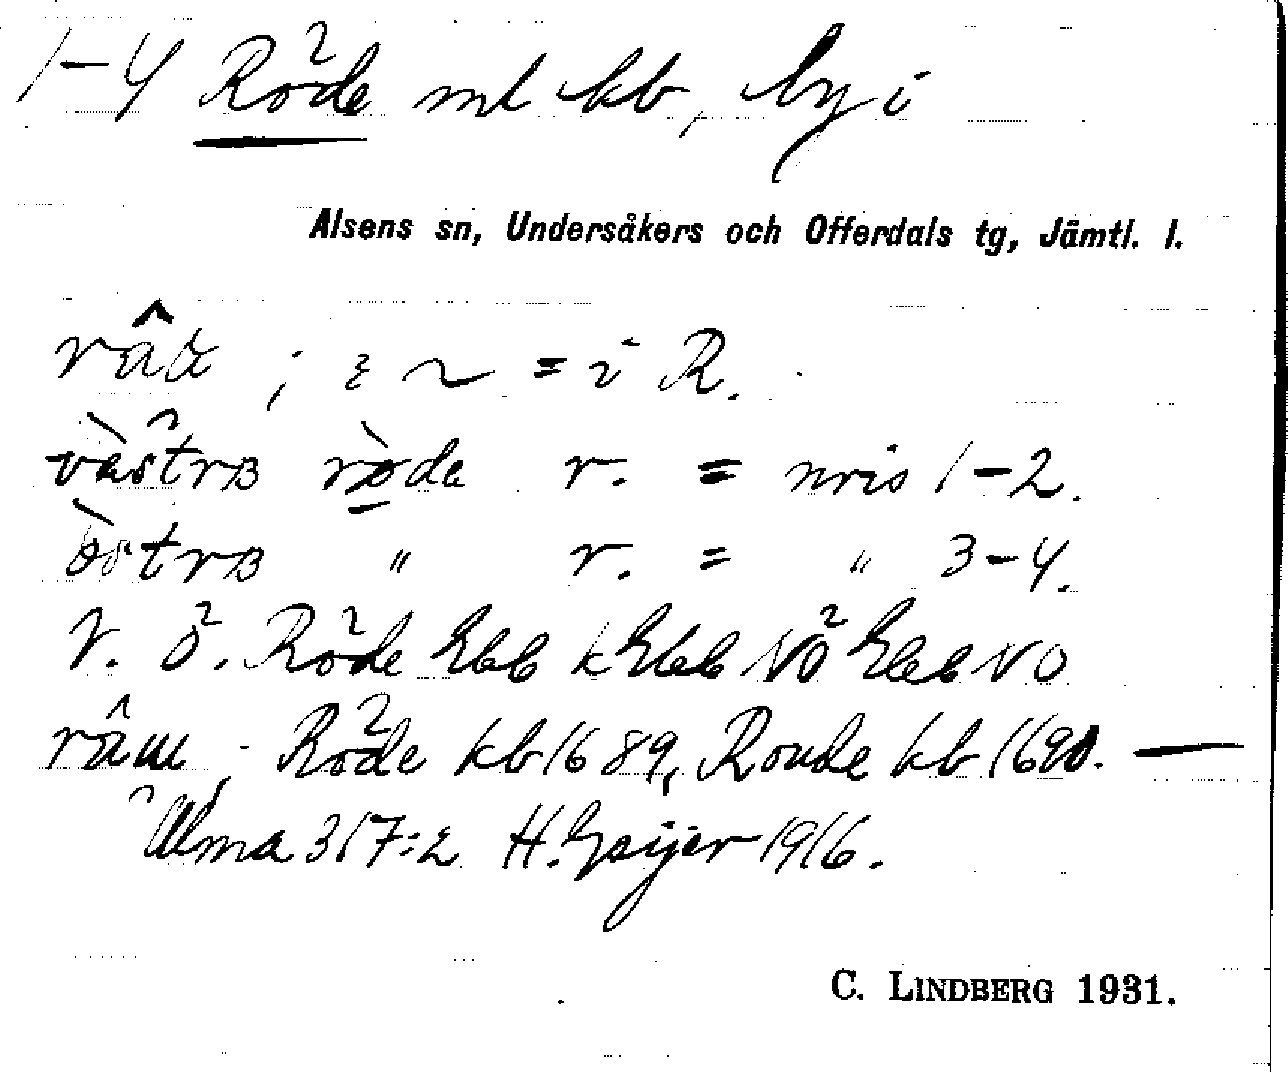 1-4 Röde ml kb, by i
Alsens sn, Undersåkers och Offerdals tg, Jämtl. l.
; = i R.
västrɞ röda r. = nris 1-2.
östrɞ " r. = " 3-4.
V. Ö. Röde
; Röde kb 1689, Roude kb 1690. —
Ulma 317:2 H. Geijer 1916.
C. LINDBERG 1931.